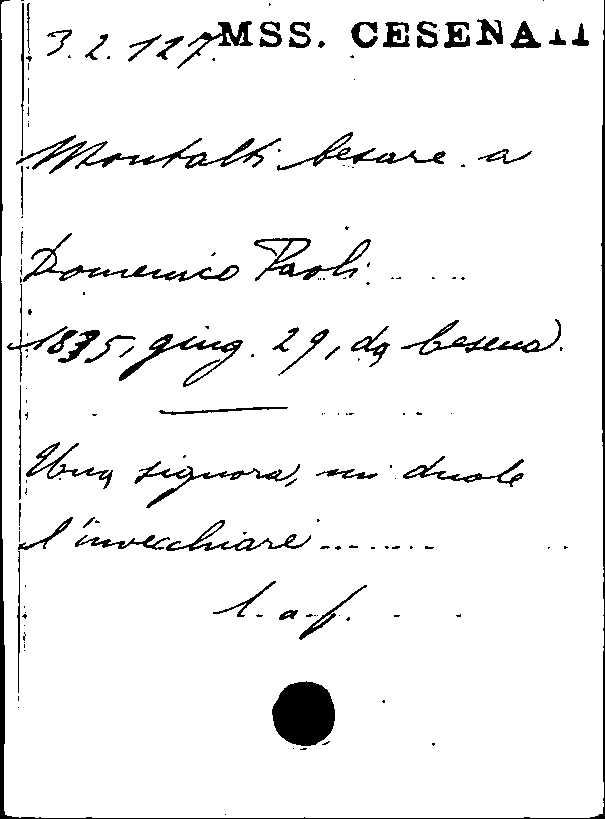 3.2.127. MSS. CESENA II
Montalti Cesare a
Domenico Paoli.
1835, giug. 29, da Cesena.
Una signora, mi duole
l'invecchiare........
l. a. f.